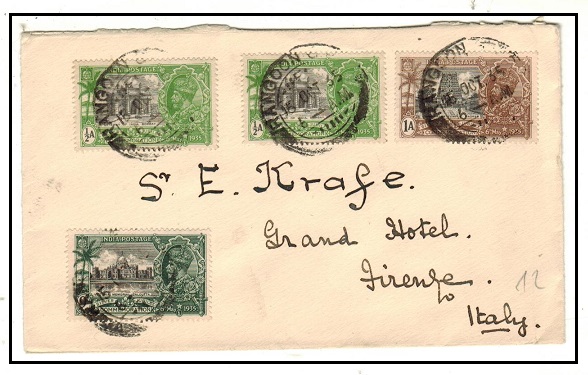 INDIA POSTAGE
INDIA POSTAGE
INDIA POSTAGE
½A
½A
1A
1935
1935
1935
RANGOON
RANGOON
RANGOON
OCT
Sr. E. Krafe.
Grand Hotel.
Firenze.
Italy.
12
INDIA POSTAGE
1935